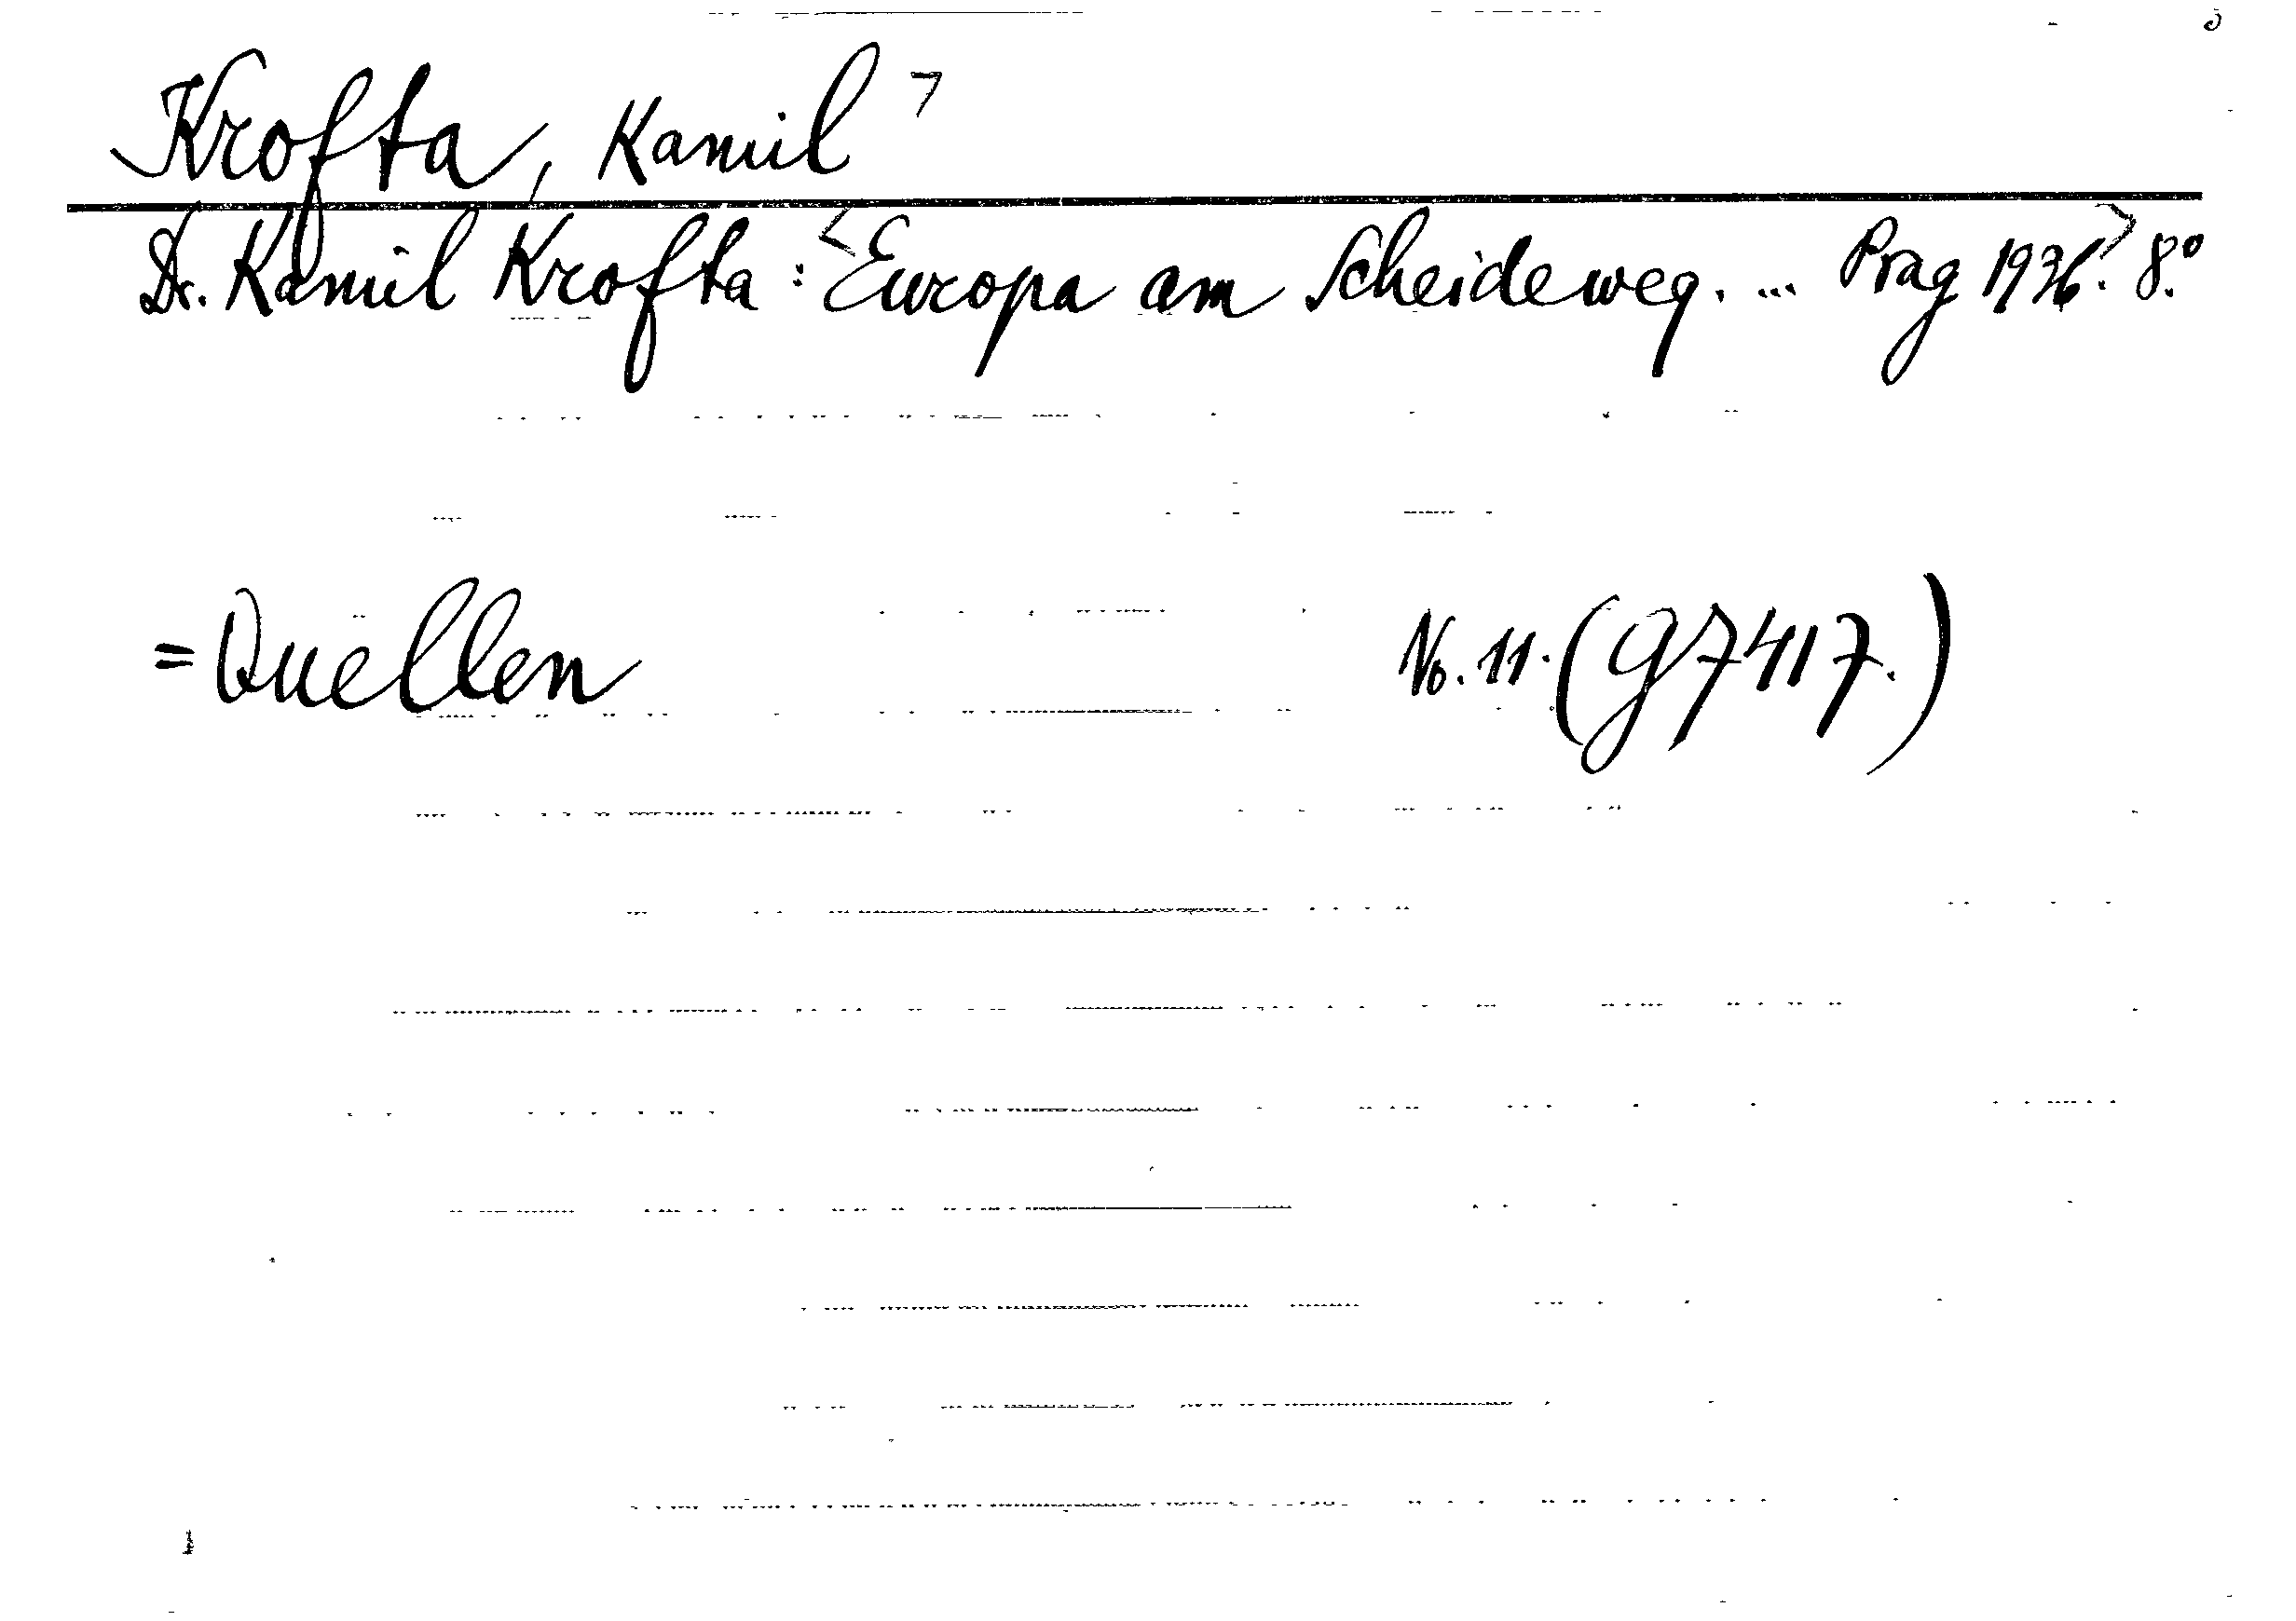 Krofta, Kamil ⁊
Dr. Kamil Krofta: <Europa am Scheideweg. ... Prag 1936.> 8.º
= Quellen No. 11. (g 7417.)
1